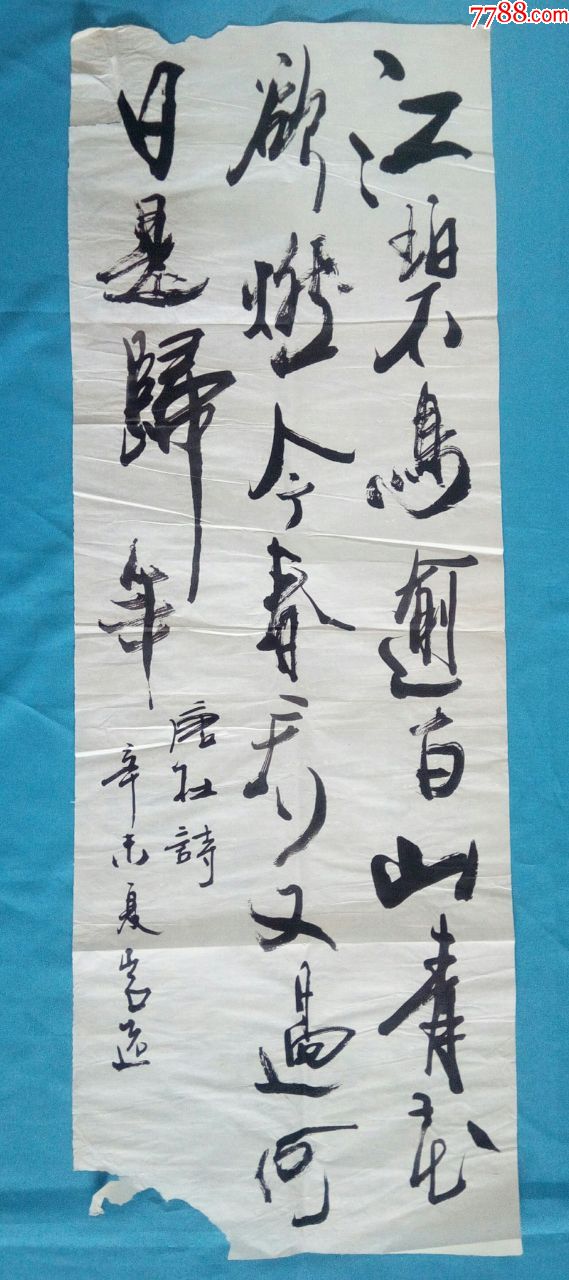 7788.com
江碧鳥逾白山青花
欲燃今春看又過何
日是歸年
唐杜詩
辛未夏